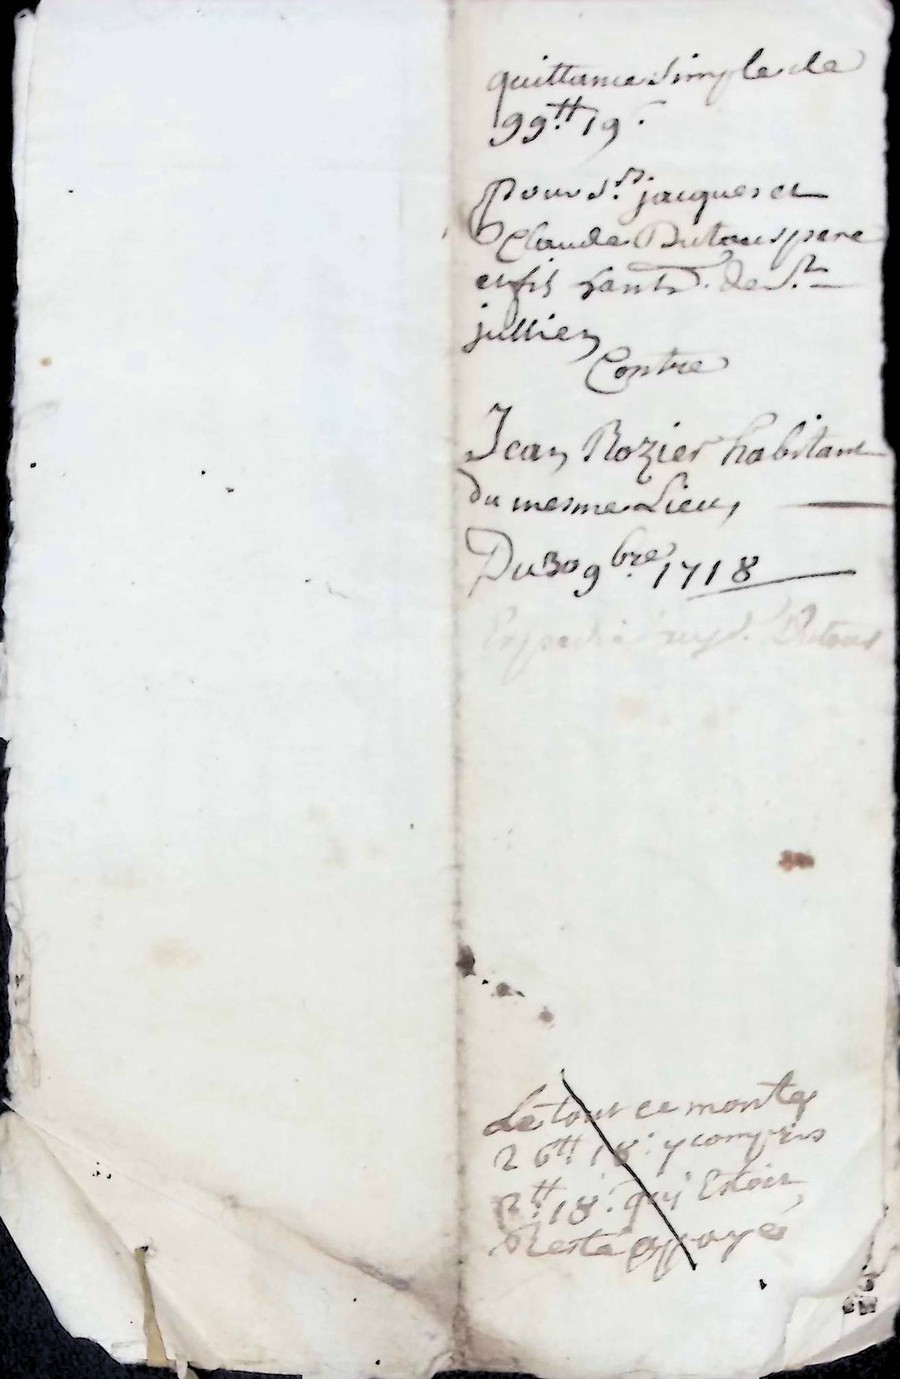 quittance simple de
99ᵗᵗ 19ˢ
pour Sʳˢ jacques et
Claude Dutour pere
et fils de Sᵗ
jullien
Contre
Jean Rozier habitant
du mesme Lieu,
Du 30 9bre 1718
Dutour
Le tout ce monte
26ᵗᵗ 18ˢ y compris
18ˢ qui Estoit
Reste